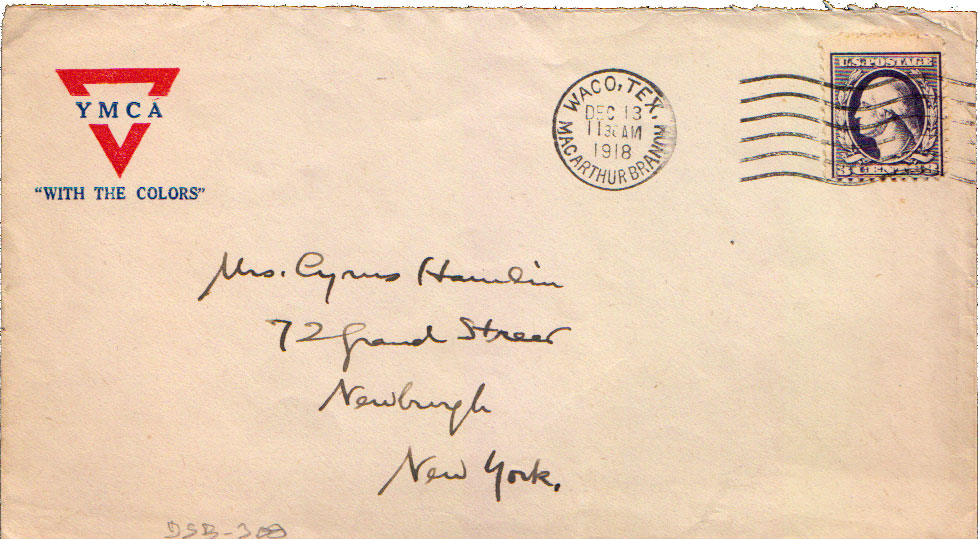 YMCA
"WITH THE COLORS"
WACO, TEX.
DEC 13
11 30 AM
1918
MACARTHUR BRANCH
U.S. POSTAGE
3 CENTS 3
Mrs. Cyrus Hamlin
72 Grand Street
Newburgh
New York.
DSB-300